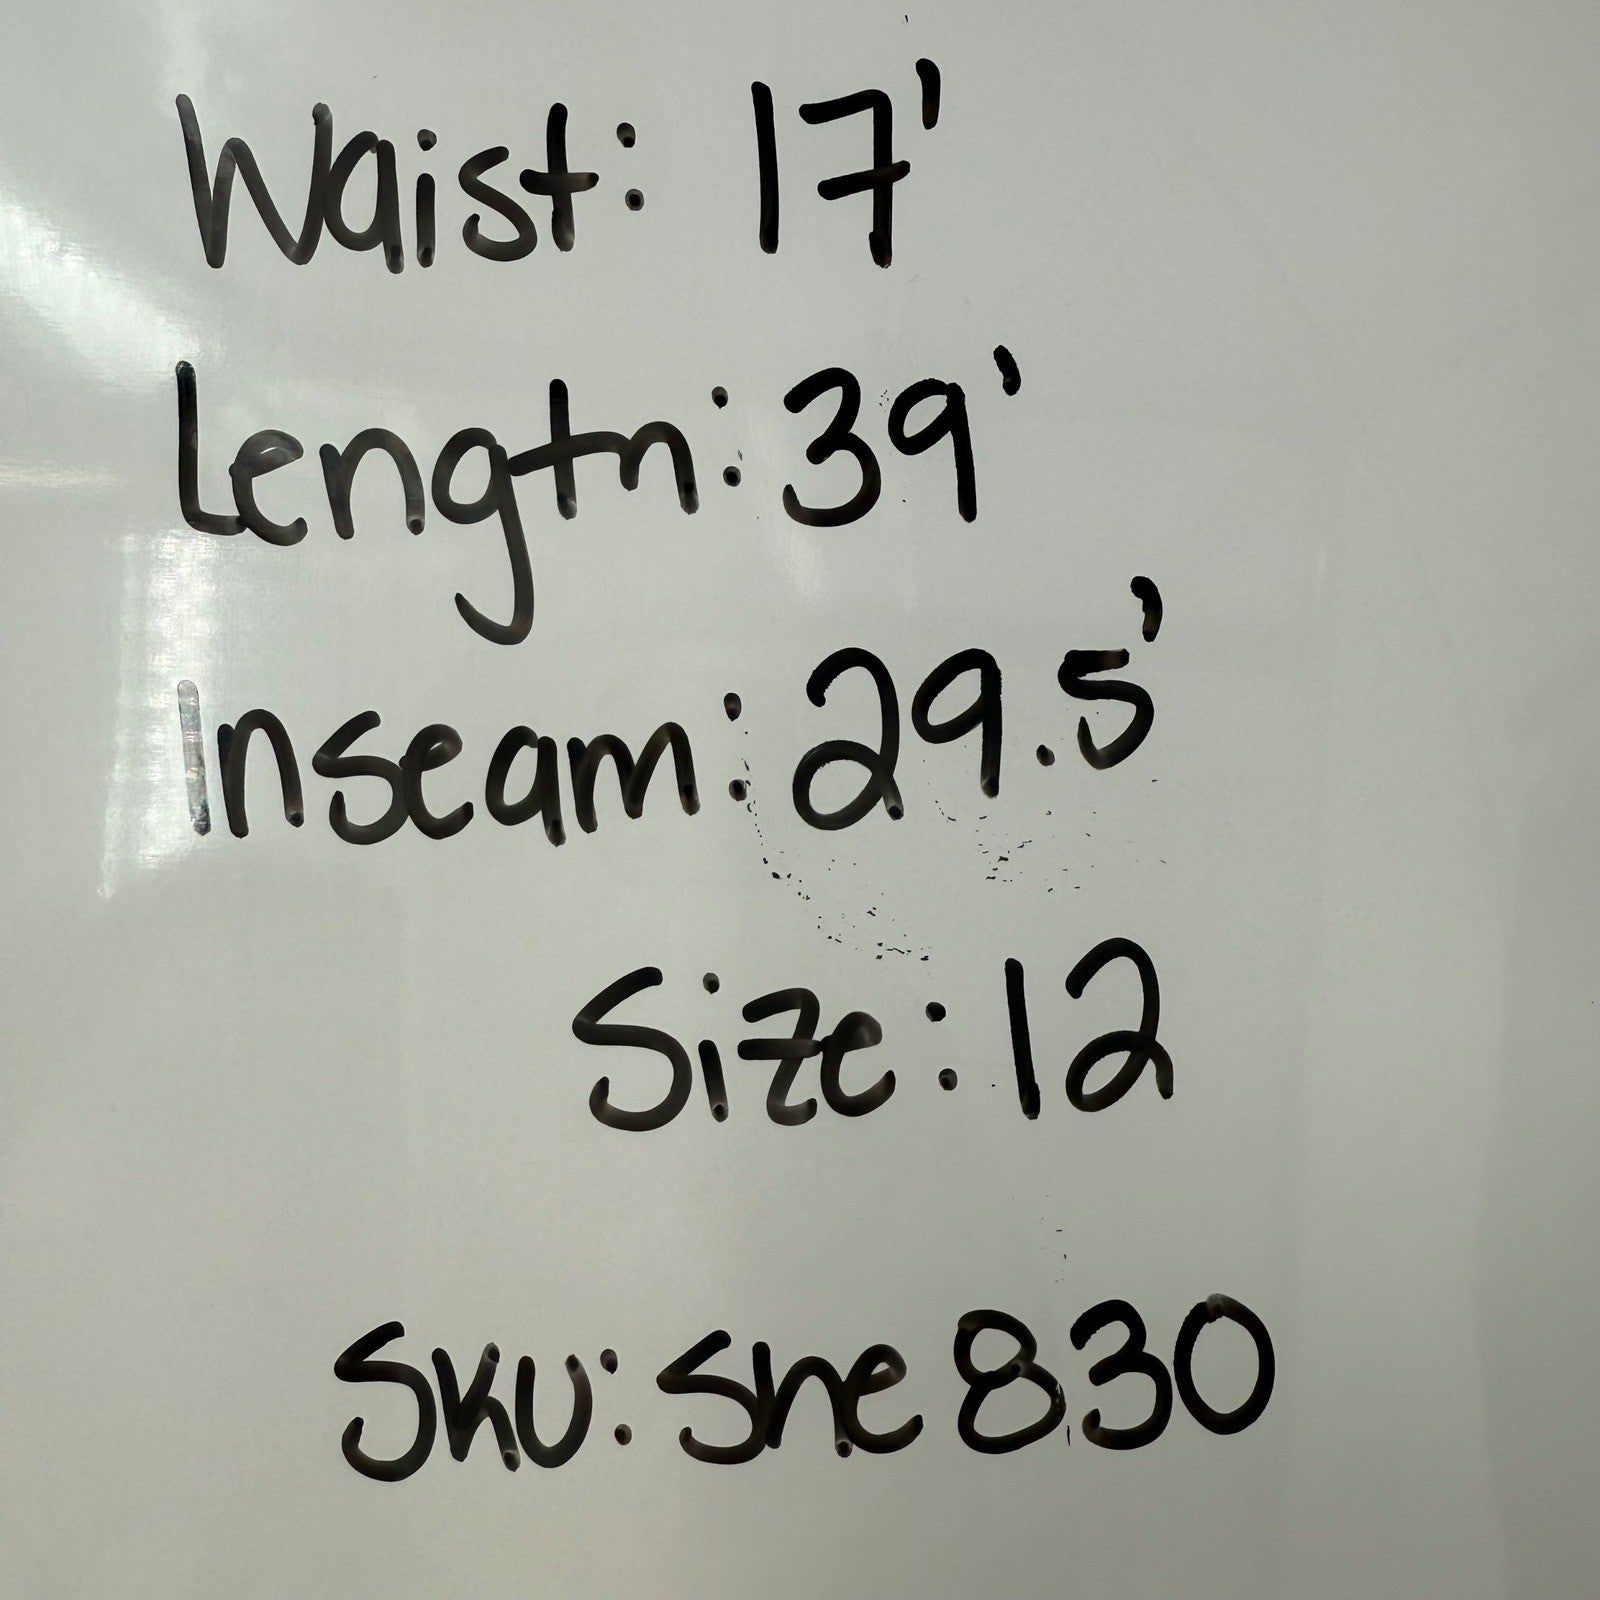 Waist: 17'
Length: 39'
Inseam: 29.5'
Size: 12
SKU: She 830